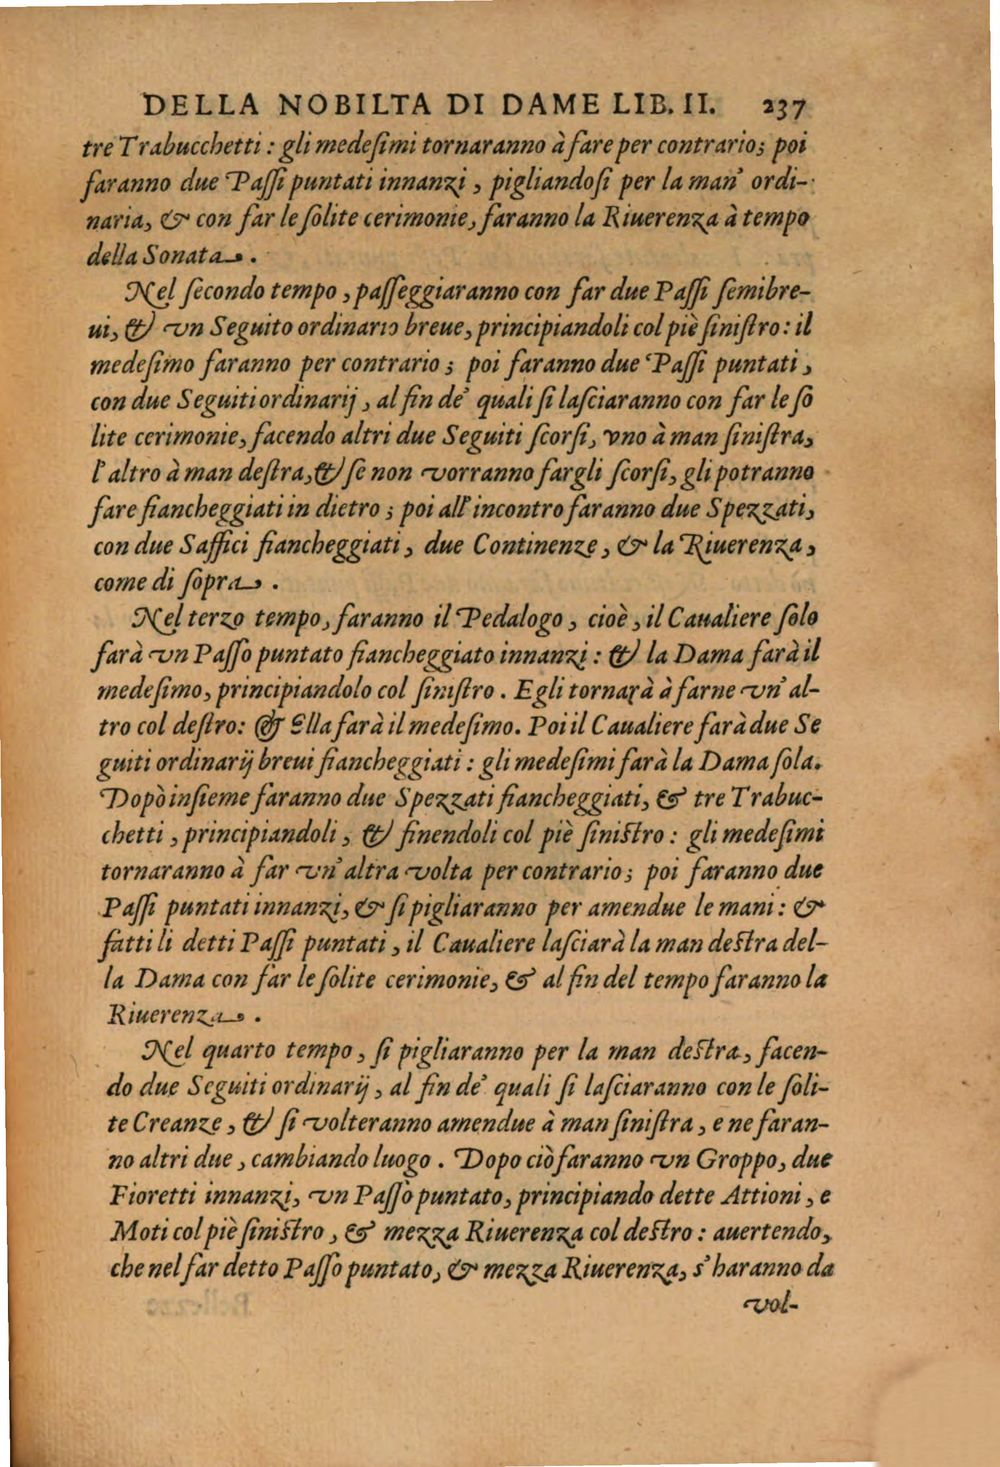 DELLA NOBILTA DI DAME LIB. II. 237
tre Trabucchetti : gli medeſimi tornaranno à fare per contrario; poi
faranno due Paſſi puntati innanzi , pigliandoſi per la man' ordi-
naria, & con far le ſolite cerimonie, faranno la Riuerenza à tempo
della Sonata .
Nel ſecondo tempo , paſſeggiaranno con far due Paſſi ſemibre-
ui, & vn Seguito ordinario breue, principiandoli col piè ſiniſtro : il
medeſimo faranno per contrario ; poi faranno due Paſſi puntati ,
con due Seguiti ordinarij , al fin de' quali ſi laſciaranno con far le ſo
lite cerimonie, facendo altri due Seguiti ſcorſi, vno à man ſiniſtra,
l'altro à man deſtra, & ſe non vorranno fargli ſcorſi, gli potranno
fare fiancheggiati in dietro ; poi all'incontro faranno due Spezzati,
con due Saffici fiancheggiati , due Continenze , & la Riuerenza ,
come di ſopra .
Nel terzo tempo, faranno il Pedalogo , cioè , il Caualiere ſolo
farà vn Paſſo puntato fiancheggiato innanzi : & la Dama farà il
medeſimo, principiandolo col ſiniſtro . Egli tornarà à farne vn' al-
tro col deſtro: & Ella farà il medeſimo. Poi il Caualiere farà due Se
guiti ordinarij breui fiancheggiati : gli medeſimi farà la Dama ſola.
Dopò inſieme faranno due Spezzati fiancheggiati, & tre Trabuc-
chetti , principiandoli , & finendoli col piè ſiniſtro : gli medeſimi
tornaranno à far vn' altra volta per contrario; poi faranno due
Paſſi puntati innanzi, & ſi pigliaranno per amendue le mani : &
fatti li detti Paſſi puntati , il Caualiere laſciarà la man deſtra del-
la Dama con far le ſolite cerimonie, & al fin del tempo faranno la
Riuerenza .
Nel quarto tempo , ſi pigliaranno per la man deſtra, facen-
do due Seguiti ordinarij , al fin de' quali ſi laſciaranno con le ſoli-
te Creanze , & ſi volteranno amendue à man ſiniſtra , e ne faran-
no altri due , cambiando luogo . Dopo ciò faranno vn Groppo, due
Fioretti innanzi, vn Paſſo puntato, principiando dette Attioni , e
Moti col piè ſiniſtro , & mezza Riuerenza col deſtro : auertendo,
che nel far detto Paſſo puntato, & mezza Riuerenza, s'haranno da
vol-